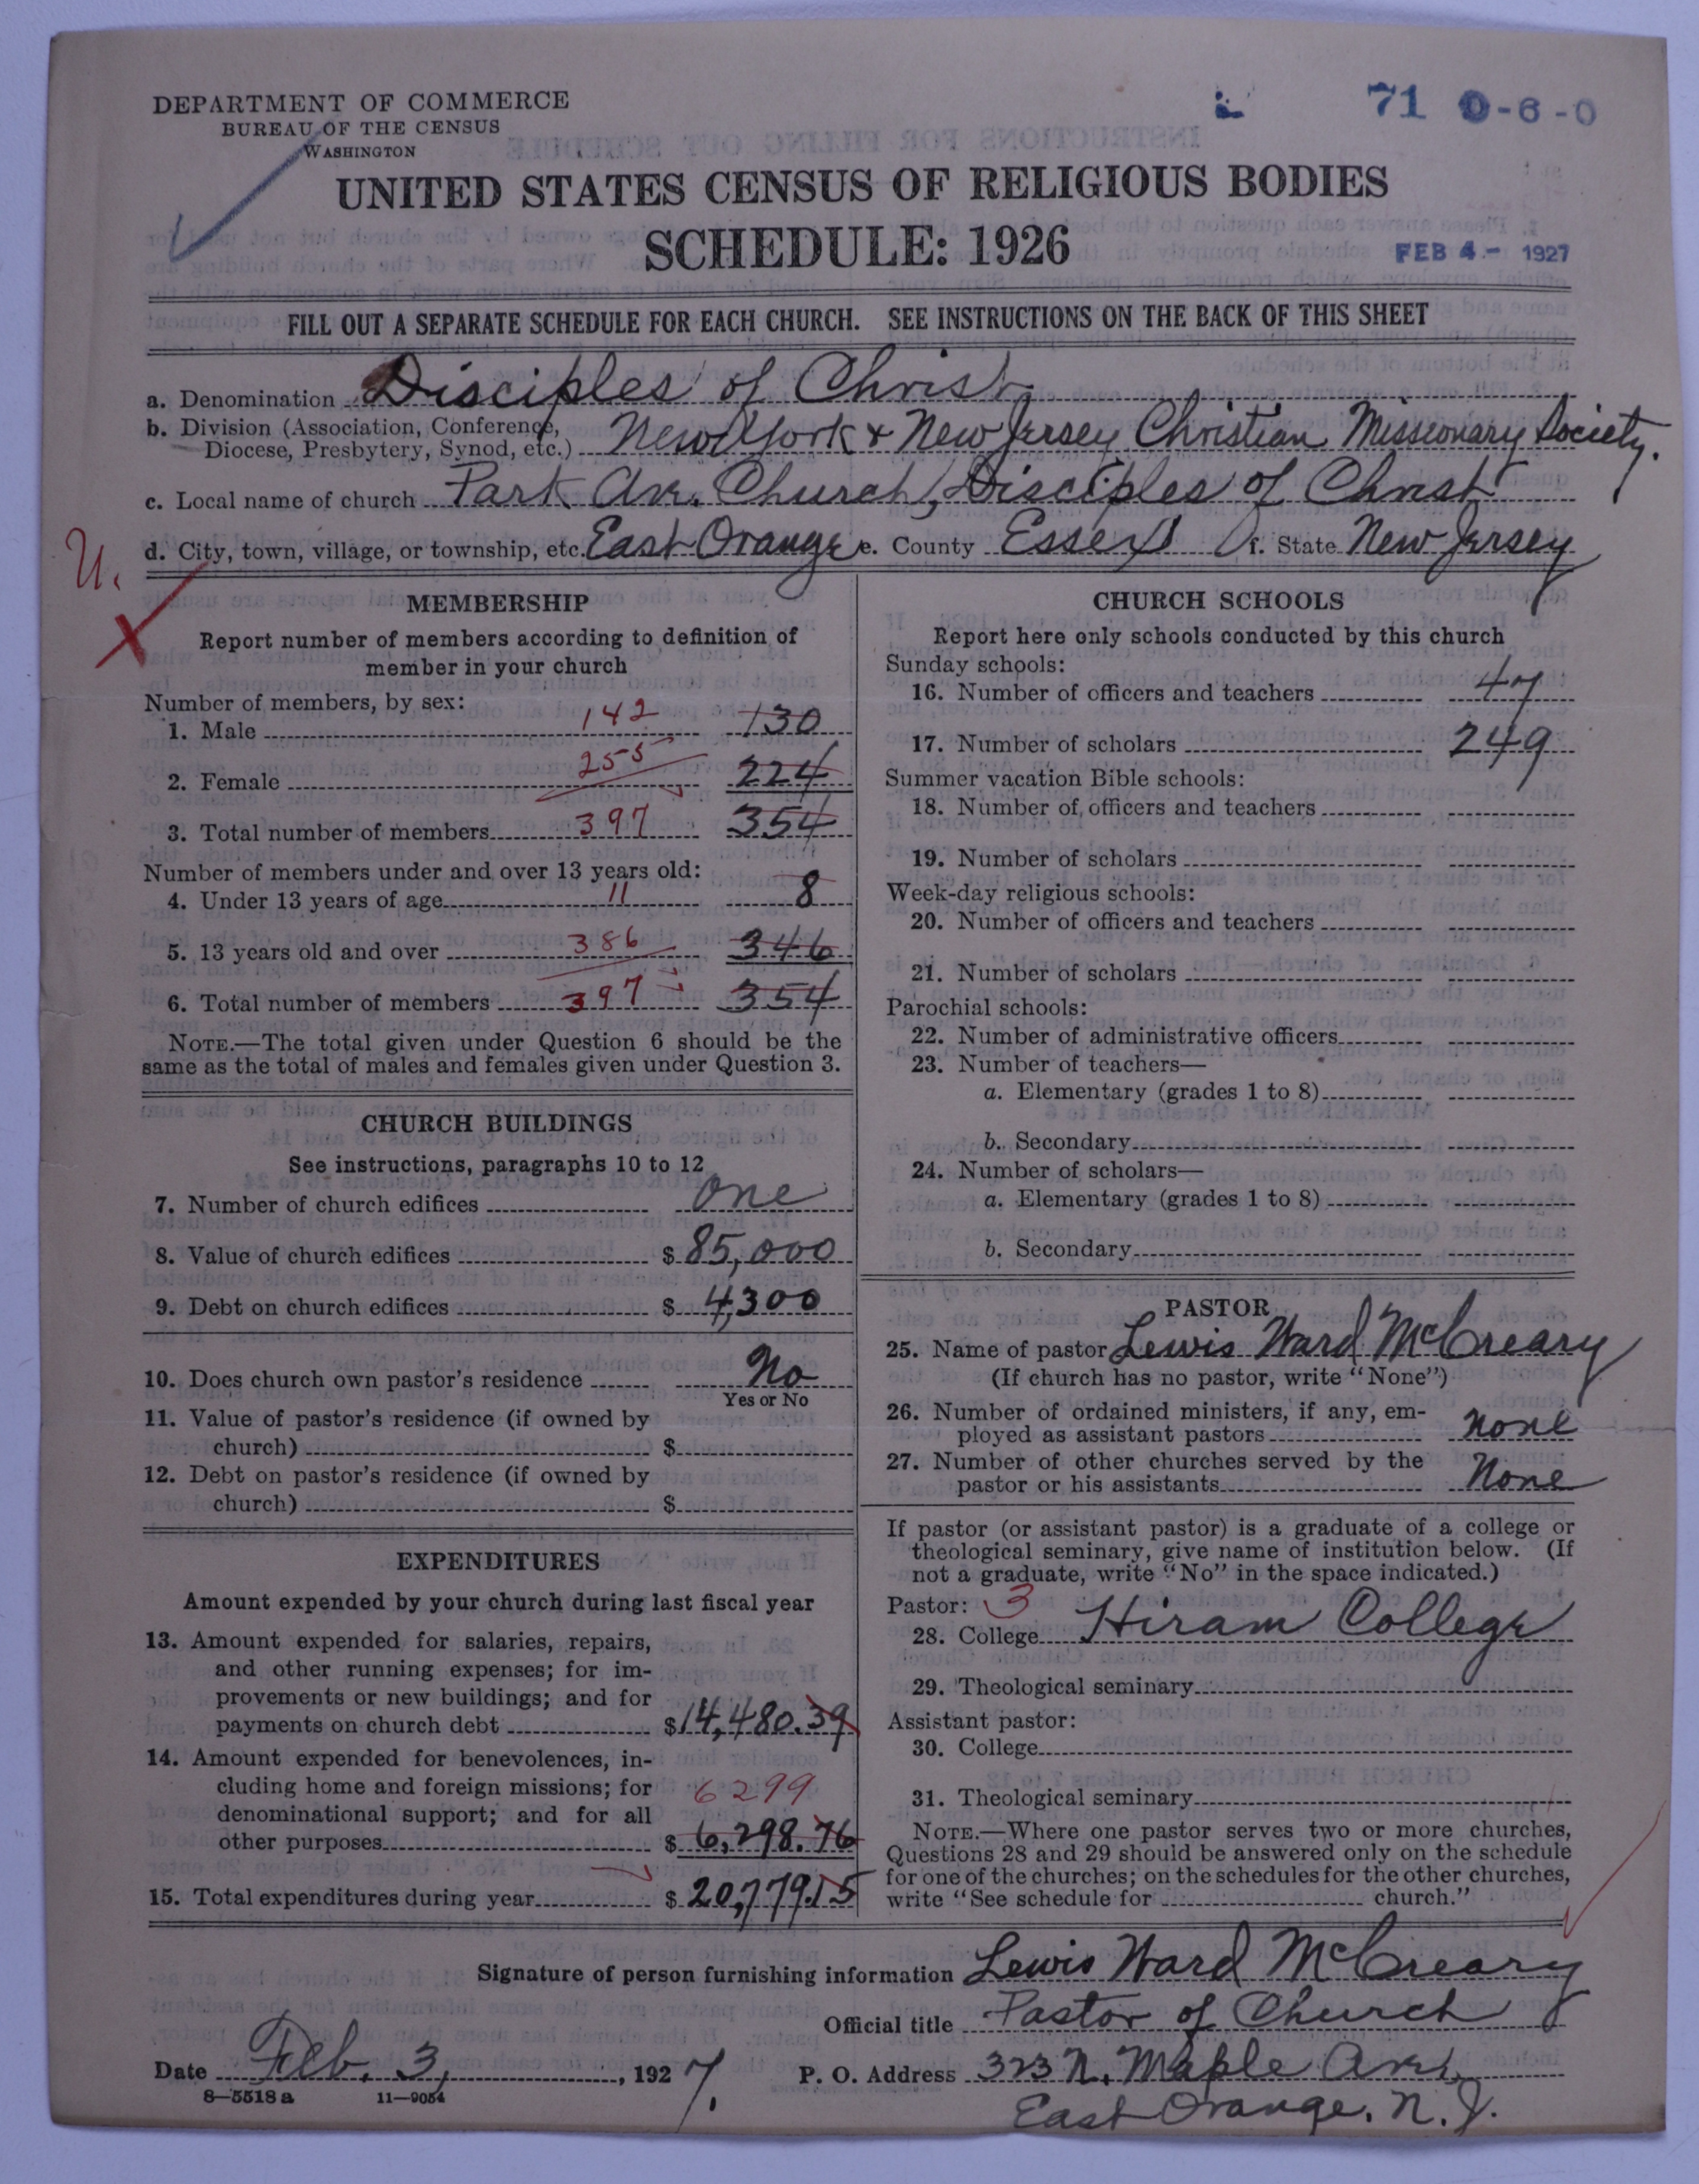 DEPARTMENT OF COMMERCE
BUREAU OF THE CENSUS
WASHINGTON
71 0-6-0
UNITED STATES CENSUS OF RELIGIOUS BODIES
SCHEDULE: 1926
FEB 4 - 1927
FILL OUT A SEPARATE SCHEDULE FOR EACH CHURCH. SEE INSTRUCTIONS ON THE BACK OF THIS SHEET
a. Denomination Disciples of Christ
b. Division (Association, Conference, Diocese, Presbytery, Synod, etc.) New York & New Jersey Christian Missionary Society.
c. Local name of church Park Ave. Church, Disciples of Christ
d. City, town, village, or township, etc. East Orange e. County Essex f. State New Jersey
U.
X
MEMBERSHIP
Report number of members according to definition of
member in your church
Number of members, by sex:
1. Male 142 130
2. Female 255 224
3. Total number of members 397 354
Number of members under and over 13 years old:
4. Under 13 years of age 11 8
5. 13 years old and over 386 346
6. Total number of members 397 354
NOTE.—The total given under Question 6 should be the
same as the total of males and females given under Question 3.
CHURCH BUILDINGS
See instructions, paragraphs 10 to 12
7. Number of church edifices one
8. Value of church edifices $ 85,000
9. Debt on church edifices $ 4,300
10. Does church own pastor's residence No
Yes or No
11. Value of pastor's residence (if owned by
church) $
12. Debt on pastor's residence (if owned by
church) $
EXPENDITURES
Amount expended by your church during last fiscal year
13. Amount expended for salaries, repairs,
and other running expenses; for im-
provements or new buildings; and for
payments on church debt $14,480.39
14. Amount expended for benevolences, in-
cluding home and foreign missions; for 6299
denominational support; and for all
other purposes $ 6,298.76
15. Total expenditures during year $ 20,779.15
CHURCH SCHOOLS
Report here only schools conducted by this church
Sunday schools:
16. Number of officers and teachers 47
17. Number of scholars 249
Summer vacation Bible schools:
18. Number of officers and teachers
19. Number of scholars
Week-day religious schools:
20. Number of officers and teachers
21. Number of scholars
Parochial schools:
22. Number of administrative officers
23. Number of teachers—
a. Elementary (grades 1 to 8)
b. Secondary
24. Number of scholars—
a. Elementary (grades 1 to 8)
b. Secondary
PASTOR
25. Name of pastor Lewis Ward McCreary
(If church has no pastor, write "None")
26. Number of ordained ministers, if any, em-
ployed as assistant pastors none
27. Number of other churches served by the
pastor or his assistants None
If pastor (or assistant pastor) is a graduate of a college or
theological seminary, give name of institution below. (If
not a graduate, write "No" in the space indicated.)
Pastor: 3
28. College Hiram College
29. Theological seminary
Assistant pastor:
30. College
31. Theological seminary
NOTE.—Where one pastor serves two or more churches,
Questions 28 and 29 should be answered only on the schedule
for one of the churches; on the schedules for the other churches,
write "See schedule for church."
Signature of person furnishing information Lewis Ward McCreary
Official title Pastor of Church
Date Feb. 3, 1927. P. O. Address 323 N. Maple Ave,
8—5518 a 11—9054
East Orange, N. J.